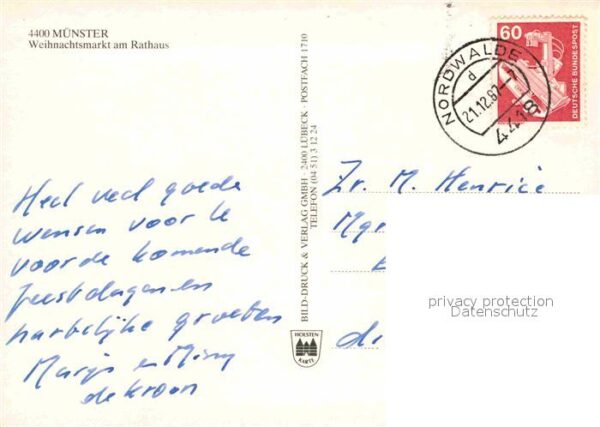 4400 MÜNSTER
Weihnachtsmarkt am Rathaus
Heel veel goede
wensen voor de
voor de komende
feestdagen en
hartelijke groeten
Marijs en Miny
de Kroon
BILD-DRUCK & VERLAG GMBH · 2400 LÜBECK · POSTFACH 1710
TELEFON (04 51) 3 12 24
HOLSTEN
KARTE
60
DEUTSCHE BUNDESPOST
NORDWALDE
d
21.12.87-7
4418
Zr. M. Henrice
Mgr
privacy protection
Datenschutz